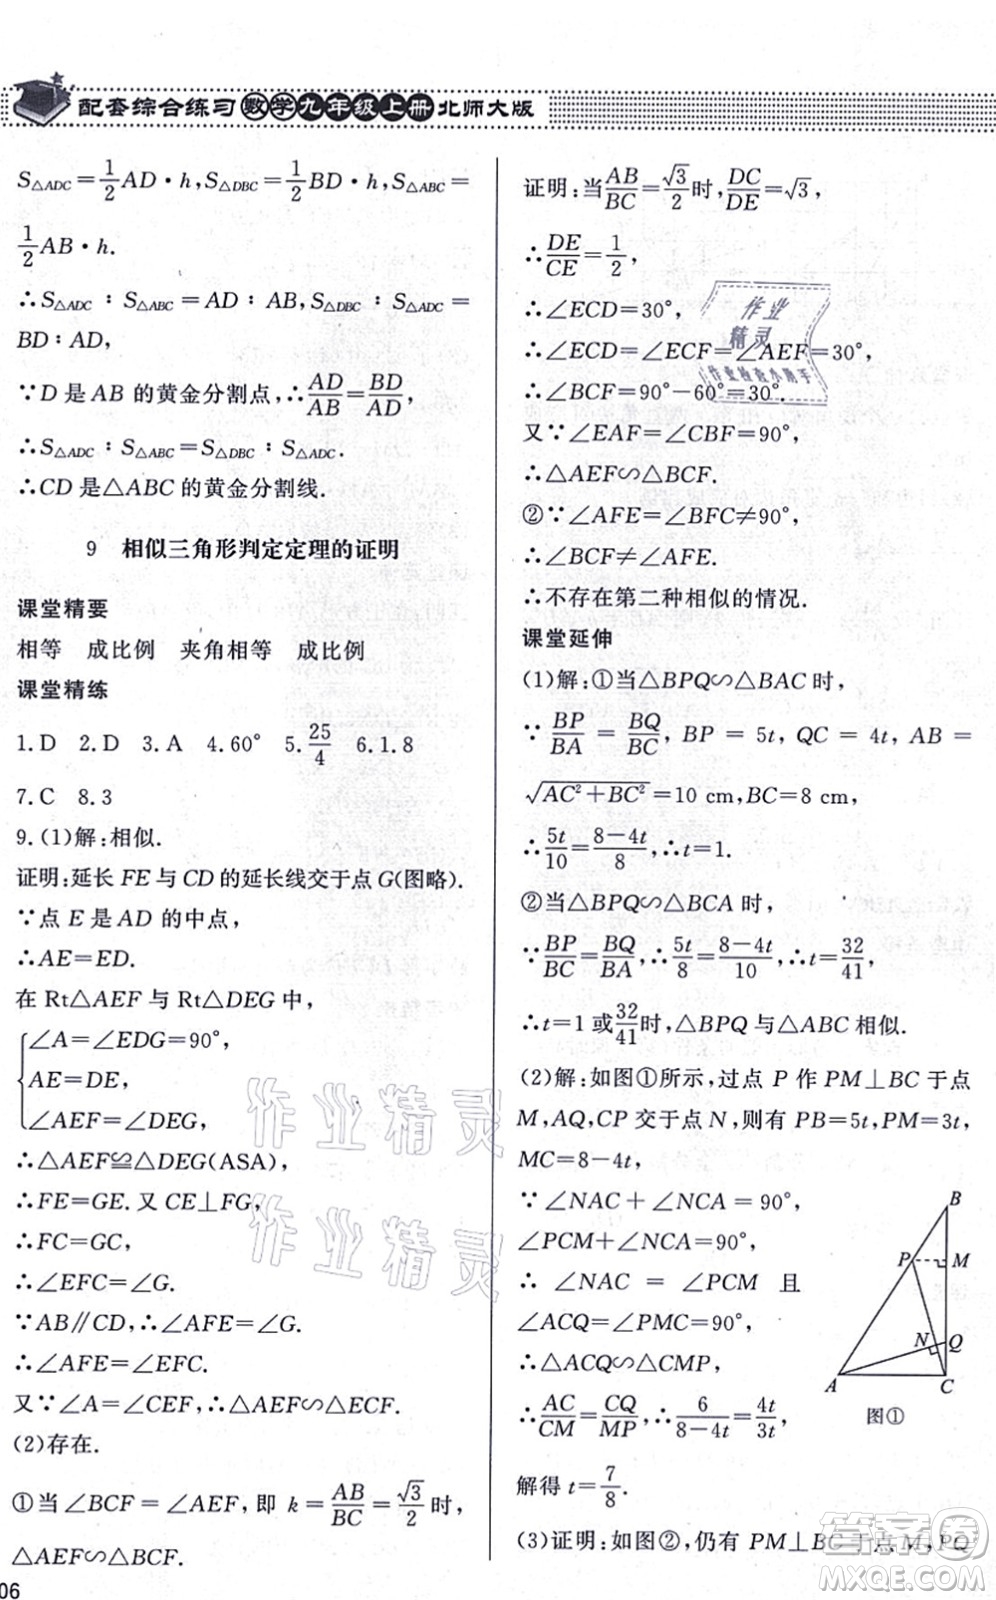 配套综合练习 数学九年级上册 北师大版
S△ADC=1/2AD·h,S△DBC=1/2BD·h,S△ABC=
1/2AB·h.
∴S△ADC∶S△ABC=AD∶AB,S△DBC∶S△ADC=
BD∶AD,
∵D是AB的黄金分割点,∴AD/AB=BD/AD,
∴S△ADC∶S△ABC=S△DBC∶S△ADC.
∴CD是△ABC的黄金分割线.
9 相似三角形判定定理的证明
课堂精要
相等 成比例 夹角相等 成比例
课堂精练
1.D 2.D 3.A 4.60° 5.25/4 6.1.8
7.C 8.3
9.(1)解:相似.
证明:延长FE与CD的延长线交于点G(图略).
∵点E是AD的中点,
∴AE=ED.
在Rt△AEF与Rt△DEG中,
∠A=∠EDG=90°,
AE=DE,
∠AEF=∠DEG,
∴△AEF≌△DEG(ASA),
∴FE=GE.又CE⊥FG,
∴FC=GC,
∴∠EFC=∠G.
∵AB∥CD,∴∠AFE=∠G.
∴∠AFE=∠EFC.
又∵∠A=∠CEF,∴△AEF∽△ECF.
(2)存在.
①当∠BCF=∠AEF,即k=AB/BC=√3/2时,
△AEF∽△BCF.
06
证明:当AB/BC=√3/2时,DC/DE=√3,
∴DE/CE=1/2,
∴∠ECD=30°,
∴∠ECD=∠ECF=∠AEF=30°,
∴∠BCF=90°-60°=30°.
又∵∠EAF=∠CBF=90°,
∴△AEF∽△BCF.
②∵∠AFE=∠BFC≠90°,
∴∠BCF≠∠AFE.
∴不存在第二种相似的情况.
课堂延伸
(1)解:①当△BPQ∽△BAC时,
∵BP/BA=BQ/BC,BP=5t,QC=4t,AB=
√(AC²+BC²)=10 cm,BC=8 cm,
∴5t/10=(8-4t)/8,∴t=1.
②当△BPQ∽△BCA时,
∵BP/BC=BQ/BA,∴5t/8=(8-4t)/10,∴t=32/41,
∴t=1或32/41时,△BPQ与△ABC相似.
(2)解:如图①所示,过点P作PM⊥BC于点
M,AQ,CP交于点N,则有PB=5t,PM=3t,
MC=8-4t,
∵∠NAC+∠NCA=90°,
∠PCM+∠NCA=90°,
∴∠NAC=∠PCM且
∠ACQ=∠PMC=90°,
∴△ACQ∽△CMP,
∴AC/CM=CQ/MP,∴6/(8-4t)=4t/3t,
解得t=7/8.
B
P
M
N
Q
A
C
图①
(3)证明:如图②,仍有PM⊥BC于点M,PQ
作业精灵
作业检查小助手
作业精灵
作业精灵
答案圈
MXQE.COM